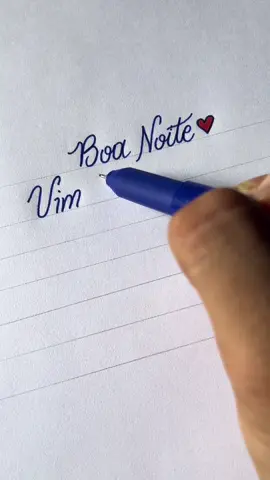 Boa Noite♥
Vim